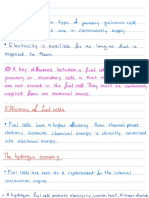 a type of primary galvanic cell
are in continuously supply
• Electricity is available for as long as fuel is
supplied to them.
A key difference between a fuel cell
primary or secondary cells is that
are not stored in the fuel cell. They must be continuously
supplied from an external source.
Efficiency of fuel cells
• Fuel cells have a higher efficiency than thermal power
stations because chemical energy is directly converted
into electrical energy.
The hydrogen economy
• Fuel cells are seen as a replacement for the internal
combustion engine.
• A hydrogen fuel cell produces electricity, water, heat, nitrogen dioxide